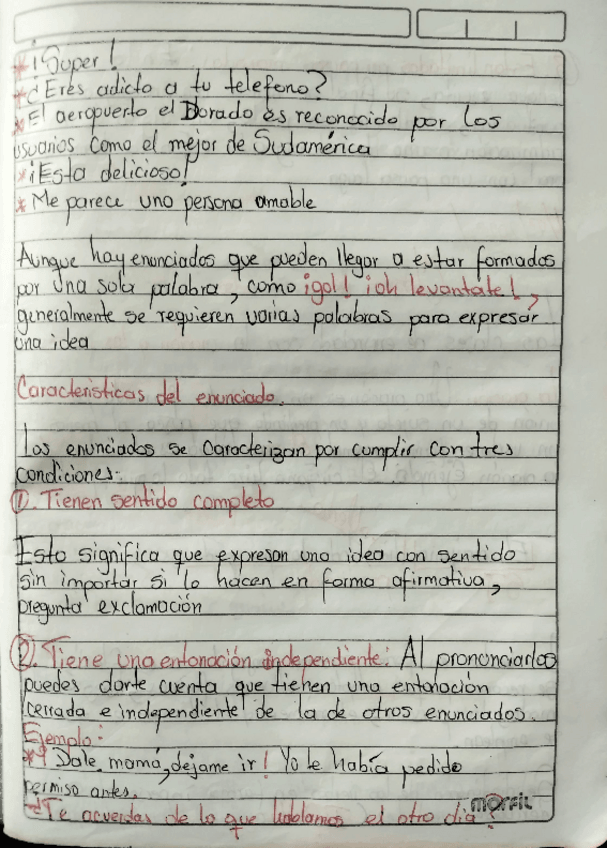 * ¡Super!
* ¿Eres adicto a tu telefono?
* El aeropuerto el Dorado es reconocido por los
usuarios como el mejor de Sudamérica
* ¡Esta delicioso!
* Me parece una persona amable
Aunque hay enunciados que pueden llegar a estar formados
por una sola palabra, como ¡gol! ¡oh levantate!,
generalmente se requieren varias palabras para expresar
una idea
Caracteristicas del enunciado.
Los enunciados se caracterizan por cumplir con tres
condiciones:
①. Tienen sentido completo
Esto significa que expresan una idea con sentido
sin importar si lo hacen en forma afirmativa,
pregunta exclamación
②. Tiene una entonación independiente: Al pronunciarlos
puedes darte cuenta que tienen una entonación
cerrada e independiente de la de otros enunciados.
Ejemplo:
* ¡Dale mamá, dejame ir! Yo le había pedido
permiso antes.
¿Te acuerdas de lo que hablamos el otro dia?
morfil